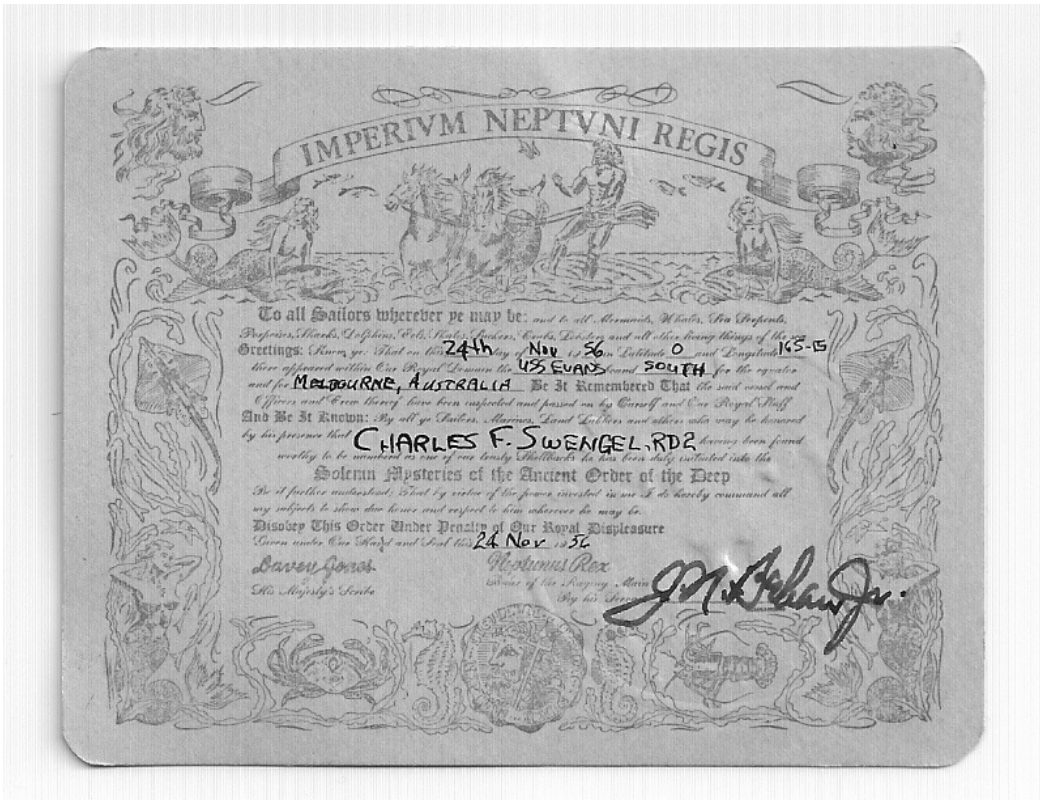 IMPERIVM NEPTVNI REGIS
To all Sailors wherever ye may be: and to all Mermaids, Whales, Sea Serpents,
Porpoises, Sharks, Dolphins, Eels, Skates, Suckers, Crabs, Lobsters and all other living things of the sea
Greetings: Know ye: That on this 24th day of Nov 1956 in Latitude 0 and Longitude 165-15
there appeared within Our Royal Domain the USS EVANS bound SOUTH for the equator
and for MELBOURNE, AUSTRALIA Be It Remembered That the said vessel and
Officers and Crew thereof have been inspected and passed on by Ourself and Our Royal Staff
And Be It Known: By all ye Sailors, Marines, Land Lubbers and others who may be honored
by his presence that CHARLES F. SWENGEL, RD2 having been found
worthy to be numbered as one of our trusty Shellbacks he has been duly initiated into the
Solemn Mysteries of the Ancient Order of the Deep
Be it further understood: That by virtue of the power invested in me I do hereby command all
my subjects to show due honor and respect to him wherever he may be.
Disobey This Order Under Penalty of Our Royal Displeasure
Given under Our Hand and Seal this 24 Nov 1956
Davey Jones Neptunus Rex
His Majesty's Scribe Ruler of the Raging Main
By his Servant